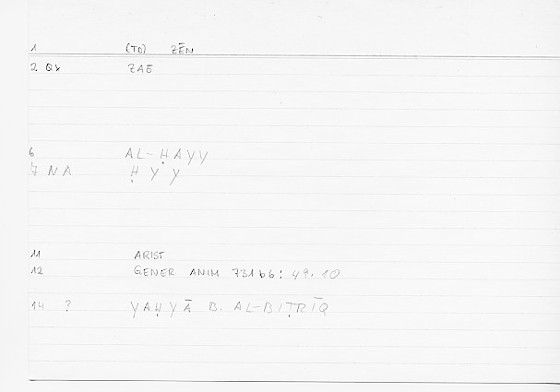 1 (TO) ZĒN
2 QX ZAŌ
6 AL-ḤAYY
7 NA ḤYY
11 ARIST
12 GENER ANIM 731b6: 49.10
14 ? YAḤYĀ B. AL-BIṬRĪQ